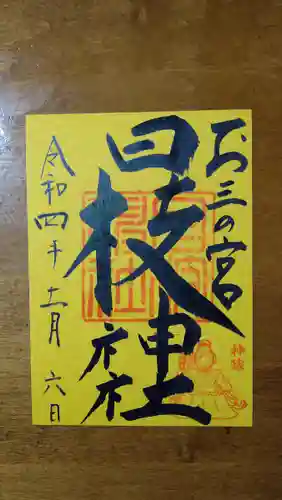 お三の宮
日枝神社
令和四年十二月六日
神猿